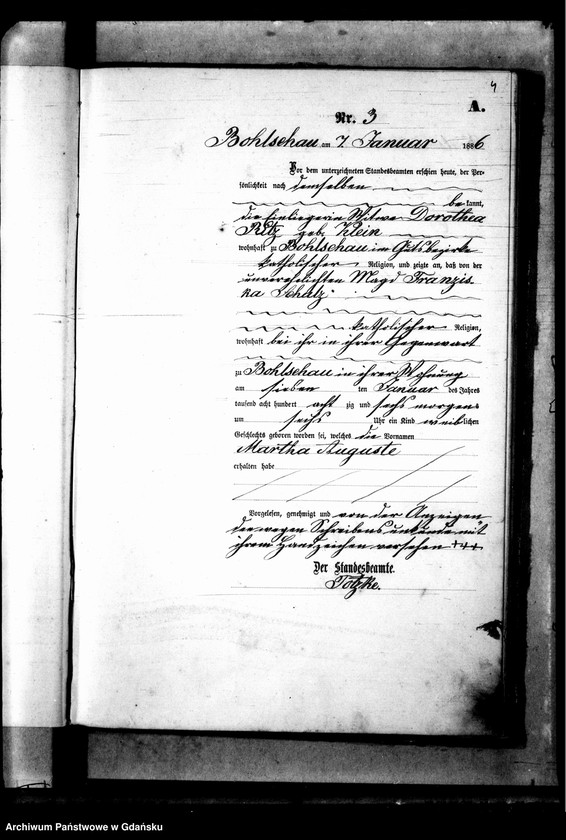 4
A.
Nr. 3
Bohlschau am 7 Januar 1886
Vor dem unterzeichneten Standesbeamten erschien heute, der Per-
sönlichkeit nach demselben
bekannt,
die Einliegerin Witwe Dorothea
geb. Klein
wohnhaft zu Bohlschau im Gutsbezirke
katholischer Religion, und zeigte an, daß von der
unverehelichten Magd Franzis-
ka Schulz
katholischer Religion,
wohnhaft bei ihr in ihrer Gegenwart
zu Bohlschau in ihrer Wohnung
am sieben ten Januar des Jahres
tausend acht hundert acht zig und sechs morgens
um sechs Uhr ein Kind weiblichen
Geschlechts geboren worden sei, welches die Vornamen
Martha Auguste
erhalten habe
Vorgelesen, genehmigt und von der Anzeigen
den wegen Schreibensunkunde mit
ihrem Handzeichen versehen +++
Der Standesbeamte.
Totzke.
Archiwum Państwowe w Gdańsku